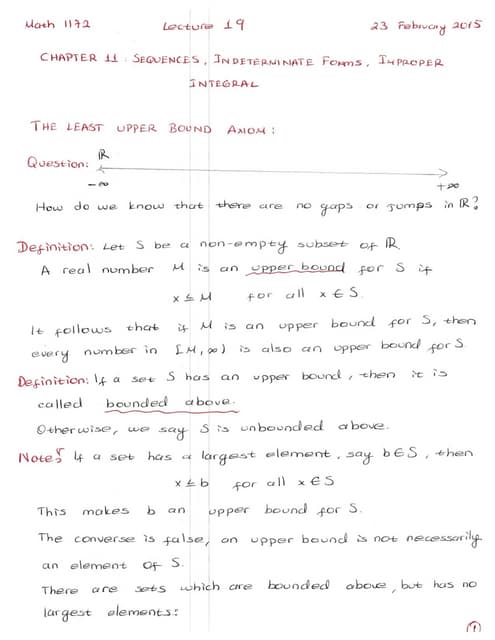 Math 1172 Lecture 19 23 February 2015
CHAPTER 11: SEQUENCES, INDETERMINATE FORMS, IMPROPER
INTEGRAL
THE LEAST UPPER BOUND AXIOM:
Question: ℝ
-∞ +∞
How do we know that there are no gaps or jumps in ℝ?
Definition: Let S be a non-empty subset of ℝ
A real number M is an upper bound for S if
x ≤ M for all x ∈ S.
It follows that if M is an upper bound for S, then
every number in [M, ∞) is also an upper bound for S.
Definition: If a set S has an upper bound, then it is
called bounded above.
Otherwise, we say S is unbounded above.
Note: If a set has a largest element, say b ∈ S, then
x ≤ b for all x ∈ S
This makes b an upper bound for S.
The converse is false, an upper bound is not necessarily
an element of S.
There are sets which are bounded above, but has no
largest elements:
1